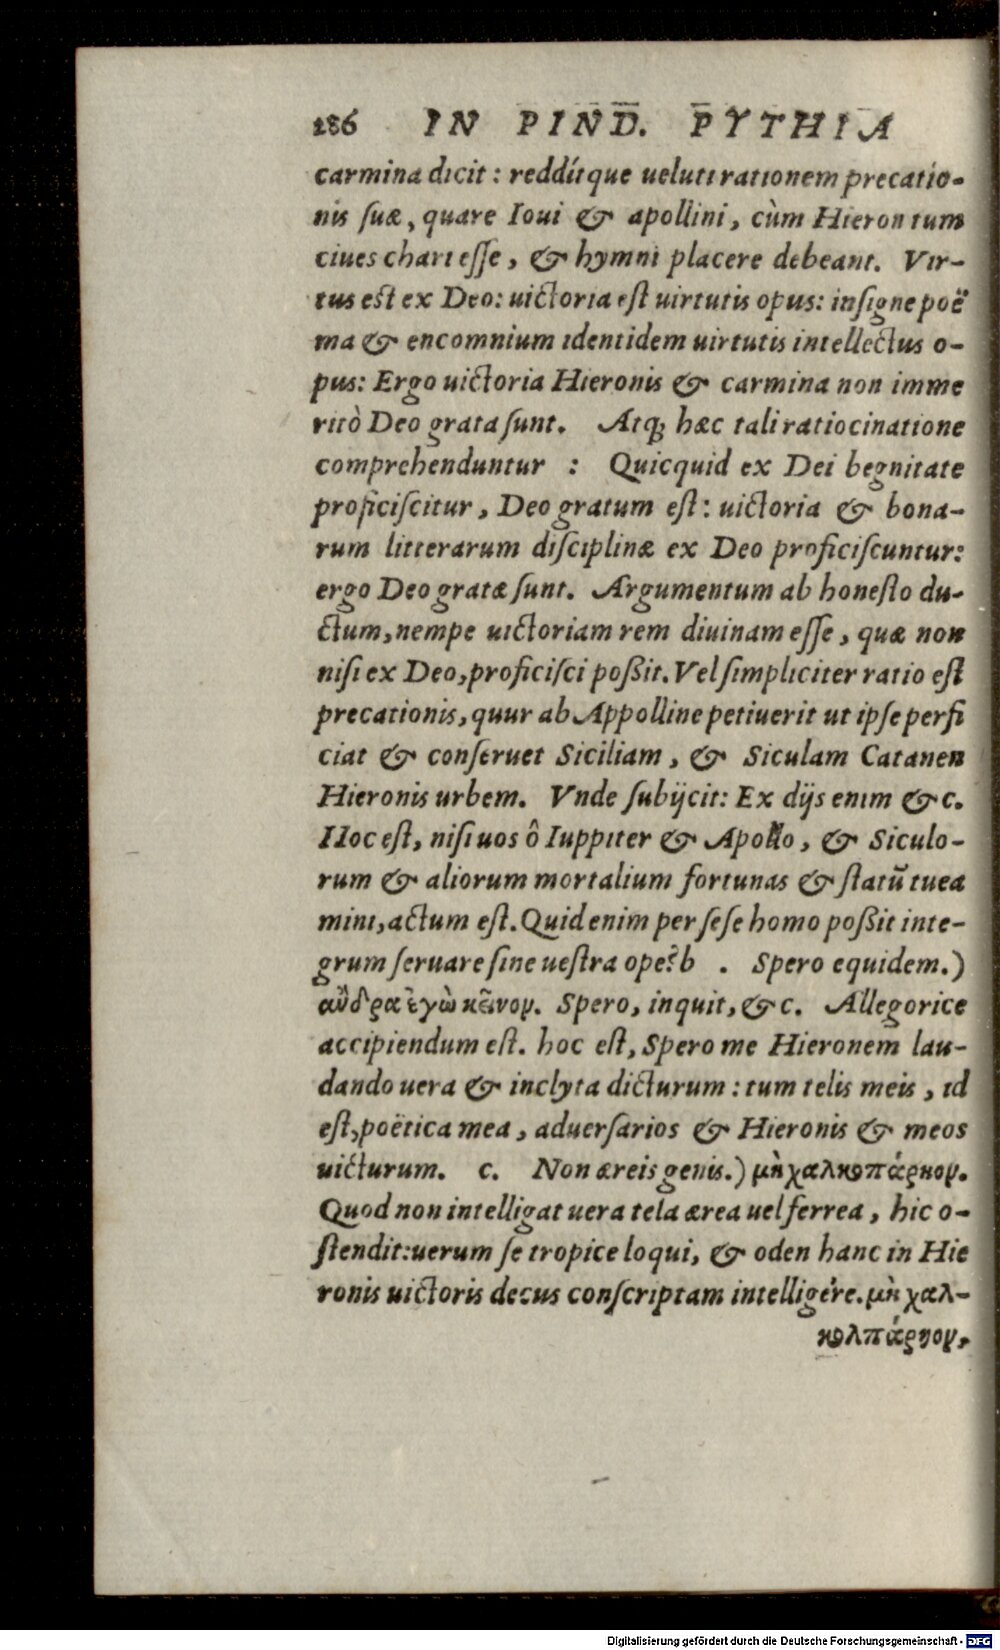 286 IN PIND. PYTHIA
carmina dicit : reddítque ueluti rationem precatio-
nis suæ, quare Ioui & apollini, cùm Hieron tum
ciues chari esse, & hymni placere debeant. Vir-
tus est ex Deo: uictoria est uirtutis opus: insigne poë
ma & encomnium identidem uirtutis intellectus o-
pus: Ergo uictoria Hieronis & carmina non imme
ritò Deo grata sunt. Atq; hæc tali ratiocinatione
comprehenduntur : Quicquid ex Dei begnitate
proficiscitur, Deo gratum est: uictoria & bona-
rum litterarum disciplinæ ex Deo proficiscuntur:
ergo Deo gratæ sunt. Argumentum ab honesto du-
ctum, nempe uictoriam rem diuinam esse, quæ non
nisi ex Deo, proficisci poßit. Vel simpliciter ratio est
precationis, quur ab Appolline petiuerit ut ipse perfi
ciat & conseruet Siciliam, & Siculam Catanen
Hieronis urbem. Vnde subijcit: Ex dijs enim &c.
Hoc est, nisi uos ô Iuppiter & Apollo, & Siculo-
rum & aliorum mortalium fortunas & statū tuea
mini, actum est. Quid enim per sese homo poßit inte-
grum seruare sine uestra ope? b . Spero equidem.)
αὔδρα ἐγὼ κεῖνον. Spero, inquit, &c. Allegorice
accipiendum est. hoc est, Spero me Hieronem lau-
dando uera & inclyta dicturum : tum telis meis, id
est, poëtica mea, aduersarios & Hieronis & meos
uicturum. c. Non æreis genis.) μὴ χαλκοπάρηον.
Quod non intelligat uera tela ærea uel ferrea, hic o-
stendit: uerum se tropice loqui, & oden hanc in Hie
ronis uictoris decus conscriptam intelligere. μὴ χαλ-
κολπάρηον,
Digitalisierung gefördert durch die Deutsche Forschungsgemeinschaft - DFG